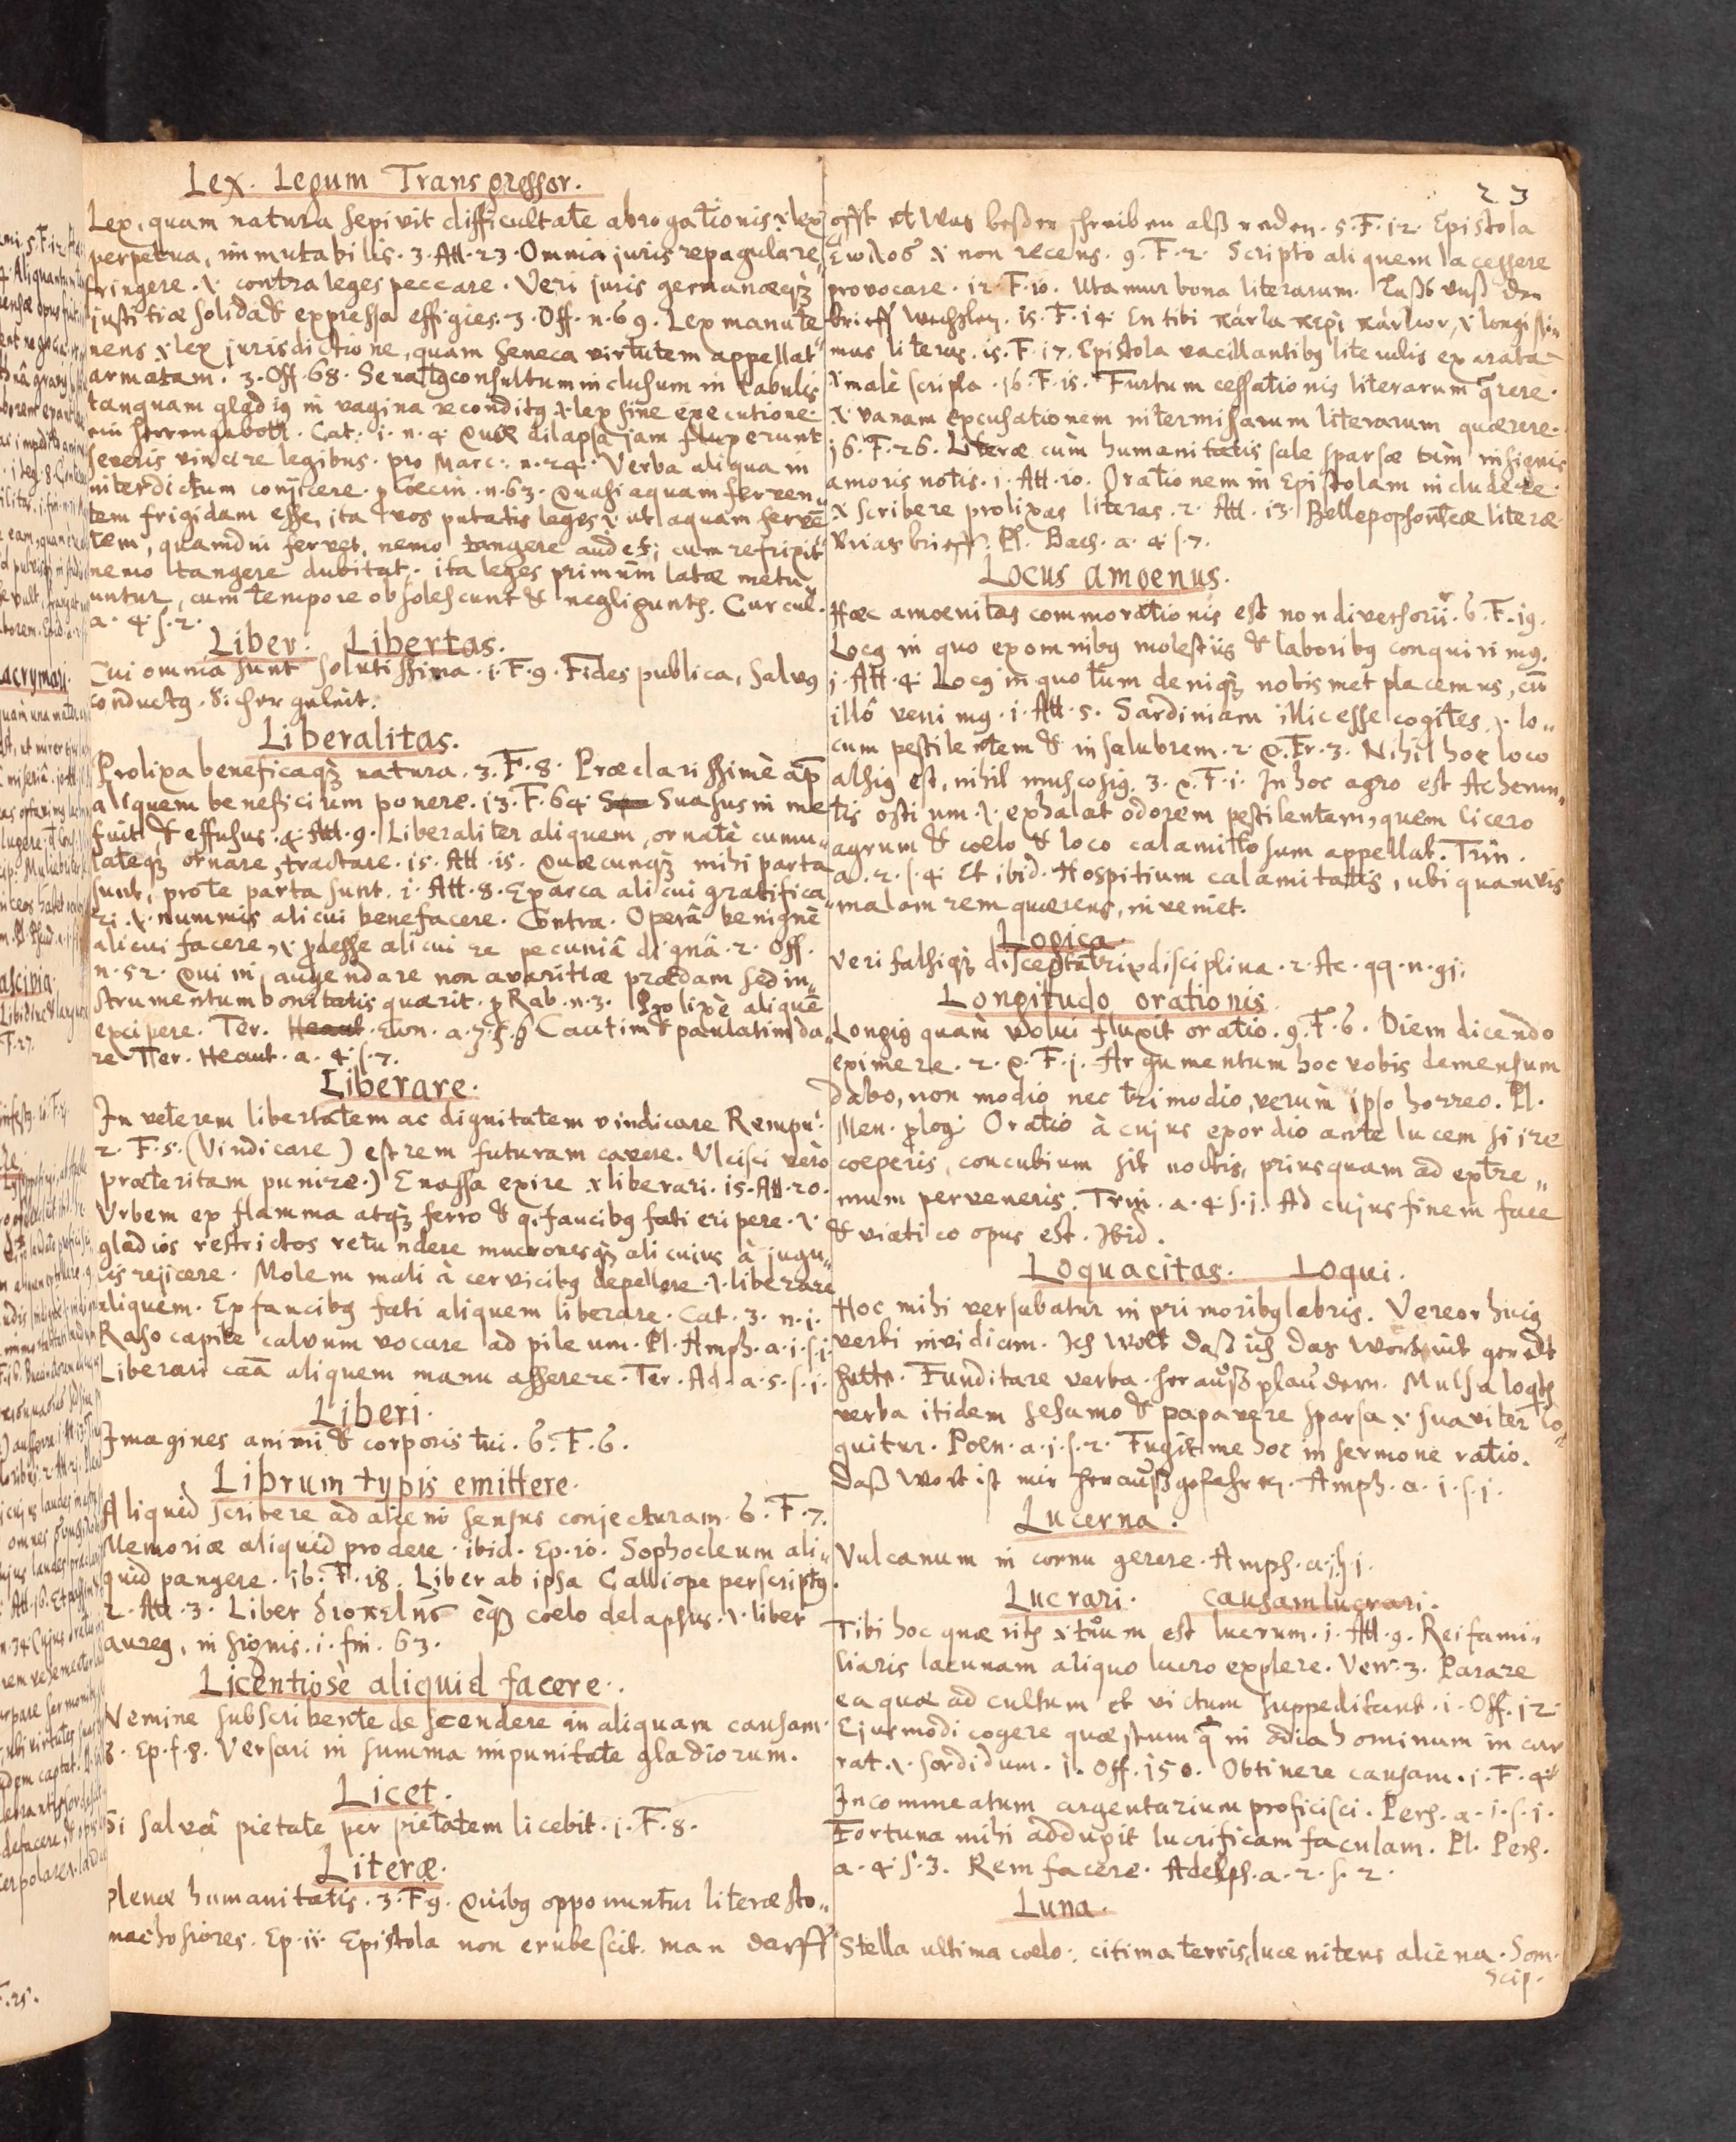 Lex. Legum Transgressor.
Lex, quam natura sepivit difficultate abrogationis. x. lex
perpetua, immutabilis. 3. Att. 23. Omnia juris repagula re„
fringere. x. contra leges peccare. Veri juris germanæqꜟ
justitiæ solida & expressa effigies. 3. Off. n. 69. Lex manu te„
nens x lex jurisdictione, quam Seneca virtutem appellat
armatam. 3. Off. 68. Senatꝯconsultum inclusum in tabulis
tanquam gladiꝯ in vagina reconditꝯ. x. lex sine executione.
ein Cat. i. n. 4. Quæ dilapsa jam fluxerunt
severis vincire legibus. pro Marc: n. 24. Verba aliqua in
interdictum conjicere. p Cæcin. n. 63. Quasi aquam ferven„
tem frigidam esse, ita vos putatis leges x. ut aquam fervē
tem, quamdiu fervet, nemo tangere audet; cum refrixit
nemo tangere dubitat; ita leges primùm latæ metu„
untur, cum tempore obsolescunt & negligunts. Curcul.
a. 4. s. 2.
Liber. Libertas.
Cui omnia sunt solutissima. i. F. 9. Fides publica, Salvꝯ
conductꝯ. Sicher geleit.
Liberalitas.
Prolixa beneficaqꜟ natura. 3. F. 8. Præclarissimè ap̄
aliquem beneficium ponere. 13. F. 64. Suasus in me
fuit, & effusus. 4. Att. 9. Liberaliter aliquem, ornatè cumu„
lateqꜟ ornare, tractare. 15. Att. 15. Quæcunqꜟ mihi parta
sunt, pro te parta sunt. i. Att. 8. Ex arca alicui gratifica„
ri. x. nummis alicui benefacere. Contra. Operâ benignè
alicui facere, x. pdesse alicui re pecuniâ dignâ. 2. Off.
n. 52. Qui in augenda re non avaritiæ prædam sed in„
strumentum bonitatis quærit. p Rab. n. 3. Prolixè aliquē
excipere. Ter. Heaut. Eun. Cautim & paulatim da„
re. Ter. Heaut. a. 4. s. 7.
Liberare.
In veterem libertatem ac dignitatem vindicare Rempu:
2. F. 5. (Vindicare) est rem futuram cavere. Ulcisci verò
præteritam punire.) E nassa exire x liberari. 15. Att. 20.
Urbem ex flamma atqꜟ ferro & q. faucibꝯ fati eripere. x.
gladios restrictos retundere mucronesqꜟ alicuius à jugu„
lis rejicere. Molem mali à cervicibꝯ depellere. x. liberare
aliquem. Ex faucibꝯ fati aliquem liberare. Cat. 3. n. i.
Raso capite calvum vocare ad pileum. Pl. Amph. a. i. s. i.
Liberari cāā aliquem manu asserere. Ter. Ad. a. 5. s. i.
Liberi.
Imagines animi & corporis tui. 6. F. 6.
Librum typis emittere.
Aliquid scribere ad alieni sensus conjecturam. 6. F. 7.
Memoriæ aliquid prodere. ibid. Ep. 10. Sophocleum ali„
quid pangere. 16. F. 18. Liber ab ipsa Calliope perscriptꝯ.
2. Att. 3. Liber eqꜟ coelo delapsus. x. liber
aureꝯ, insignis. i. fin. 63.
Licentiosè aliquid facere.
Nemine subscribente descendere in aliquam causam.
8. Ep. f. 8. Versari in summa impunitate gladiorum.
Licet.
Si salvâ pietate per pietatem licebit. i. F. 8.
Literæ.
Plenæ humanitatis. 3. F. 9. Quibꝯ opponuntur literæ sto„
machosiores. Ep. ii. Epistola non erubescit. man darff
23
offt etwas beßer schreiben alß reden. 5. F. 12. Epistola
ἕωλος x non recens. 9. F. 2. Scripto aliquem lacessere
provocare. 12. F. 10. Utamur bona literarum. Laßt vnß den
brieff wechßlen. 15. F. 14. En tibi x longissi„
mas literas. 15. F. 17. Epistola vacillantibꝯ literulis exarata
x malè scripta. 16. F. 15. Furtum cessationis literarum q̄rere.
x. vanam excusationem intermissarum literarum quærere.
16. F. 26. Literæ cùm humanitatis sale sparsæ tùm insignis
amoris notis. i. Att. 10. Orationem in Epistolam includere.
x scribere prolixas literas. 2. Att. 13. Bellepophonteæ literæ
Urias brieff. Pl. Bach. a. 4. s. 7.
Locus amoenus.
Hæc amoenitas commorationis est non diversorii. 6. F. 19.
Locꝯ in quo ex omnibꝯ molestiis & laboribꝯ conquirimꝯ.
i. Att. 4. Locꝯ in quo tum deniqꜟ nobismet placemus, cū
illô venimꝯ. i. Att. 5. Sardiniam illic esse cogites. x. lo„
cum pestilentem & insalubrem. 2. Q. Fr. 3. Nihil hoc loco
alsiꝯ est, nihil muscosiꝯ. 3. Q. F. i. In hoc agro est Acherun„
tis ostium. x. exhalat odorem pestilentem, quem Cicero
agrum & coelo & loco calamitosum appellat. Trin.
a. 2. s. 4. Et ibid. Hospitium calamitatis, ubi quamvis
malam rem quærens, inveniet.
Logica.
Veri falsiqꜟ disceptatrix disciplina. 2. Ac. qq. n. 91.
Longitudo orationis
Longiꝯ quàm volui fluxit oratio. 9. F. 6. Diem dicendo
eximere. 2. Q. F. i. Argumentum hoc vobis demensum
dabo, non modio nec trimodio, verùm ipso horreo. Pl.
Men. plog: Oratio à cujus exordio ante lucem si ire
coeperis, concubium sit noctis, priusquam ad extre„
mum perveneris. Trin. a. 4. s. i. Ad cujus finem face
& viatico opus est. Ibid.
Loquacitas. Loqui.
Hoc mihi versabatur in primoribꝯ labris. Vereor huiꝯ
verbi invidiam. Ich wolt daß ich das wort nit geredt
hette. Funditare verba. herauß plaudern. Mulsa loqts
verba itidem sesamo & papavere sparsa x. suaviter lo„
quitur. Poen. a. i. s. 2. Fugit me hoc in sermone ratio.
Daß wort ist mir herauß gefahren. Amph. a. i. s. i.
Lucerna.
Vulcanum in cornu gerere. Amph. a. i. s. i.
Lucrari. causam lucrari.
Tibi hoc quærits x tuum est lucrum. i. Att. 9. Rei fami„
liaris lacunam aliquo lucro explere. Verr. 3. Parare
ea quæ ad cultum et victum suppeditant. i. Off. 12.
Ejusmodi cogere quæstum q̄ in odia hominum incur
rat. x. sordidum. i. Off. 150. Obtinere causam. i. F. 4.
In commeatum argentarium proficisci. Pers. a. i. s. i.
Fortuna mihi adduxit lucrificam faculam. Pl. Pers.
a. 4. s. 3. Rem facere. Adelph. a. 2. s. 2.
Luna.
Stella ultima coelo: citima terris, luce nitens aliena. Som.
Scip.